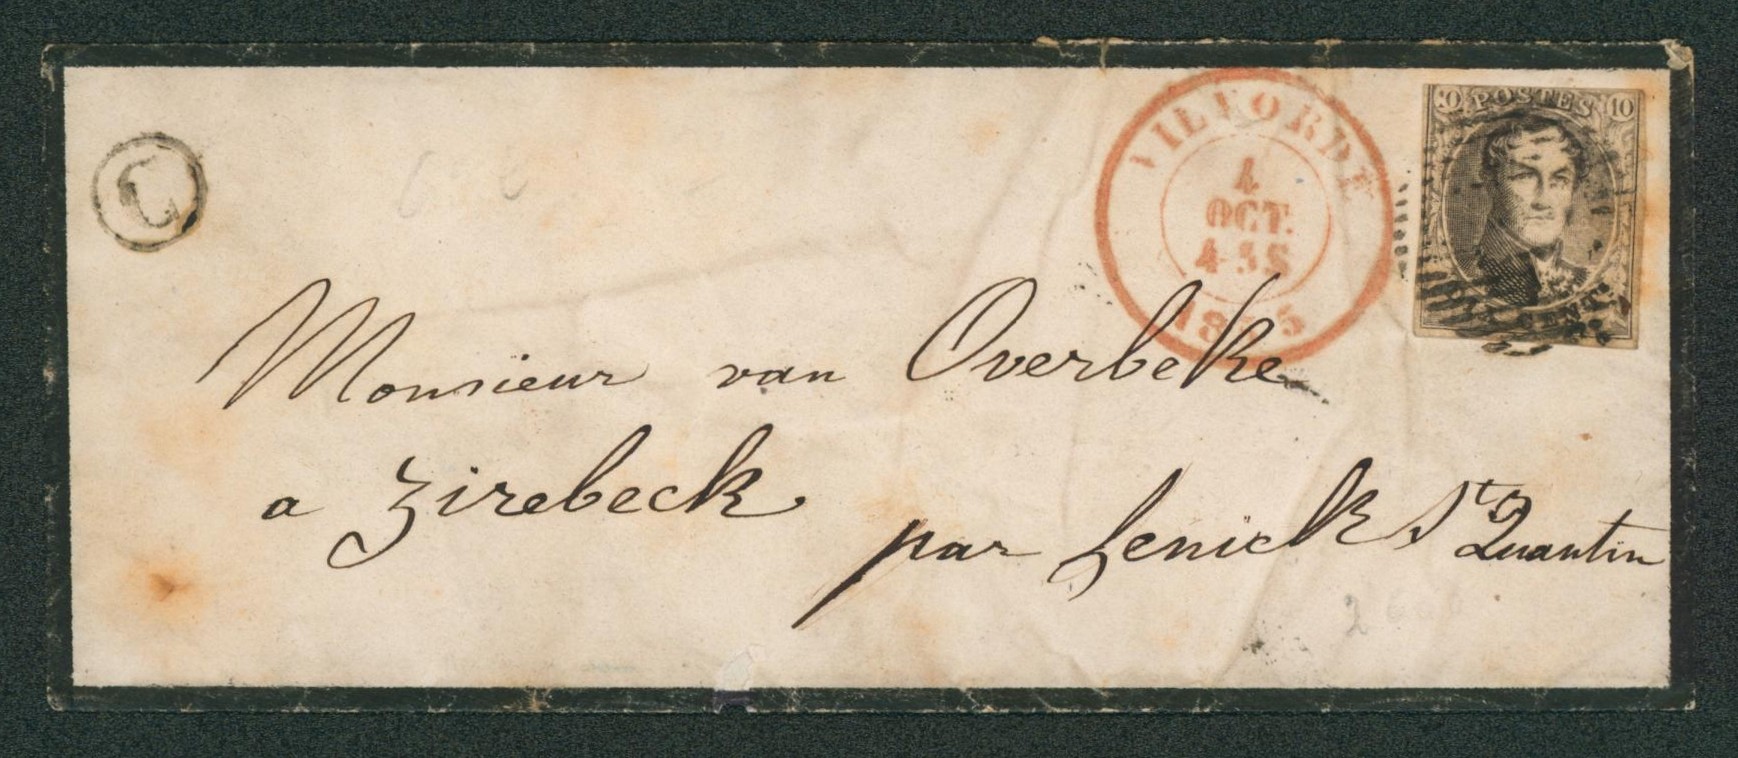 VILVORDE
4
OCT.
4-5S
1855
10 POSTES 10
Monsieur van Overbeke
a Zirebeck
par Lenick St Quantin